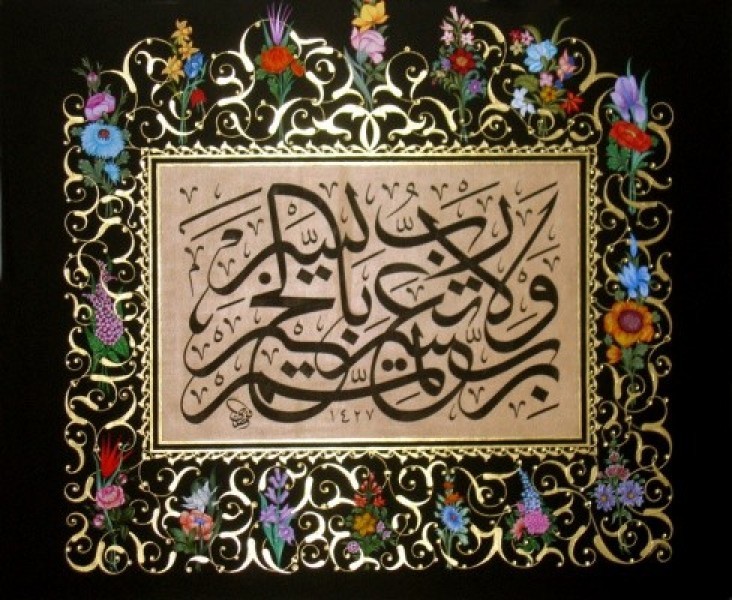 رب يسر
ولا تعسر
رب تمم بالخير
١٤٢٧